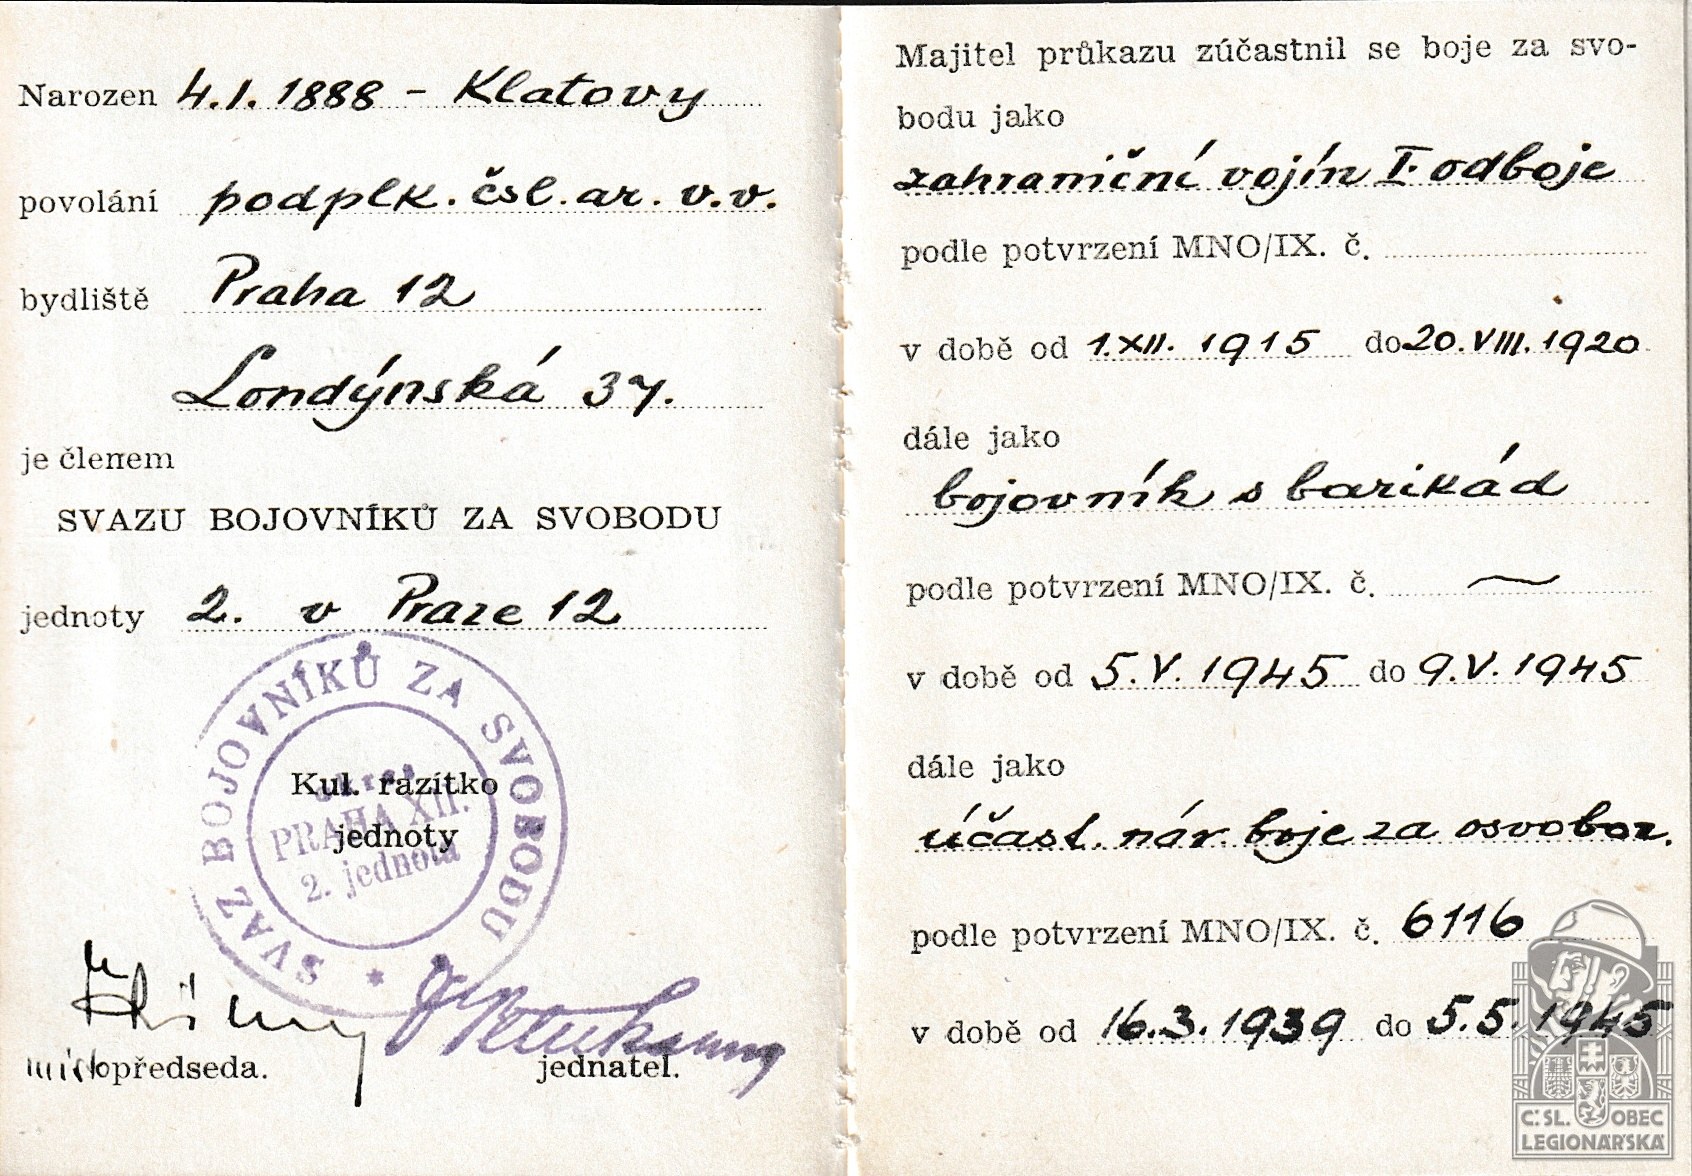 Narozen 4.I. 1888 - Klatovy
povolání podplk. čsl. ar. v.v.
bydliště Praha 12
Londýnská 37.
je členem
SVAZU BOJOVNÍKŮ ZA SVOBODU
jednoty 2. v Praze 12
SVAZ BOJOVNÍKŮ ZA SVOBODU
okres
PRAHA XII.
2. jednota
Kul. razítko
jednoty
místopředseda.
jednatel.
Majitel průkazu zúčastnil se boje za svo-
bodu jako
zahraniční vojín I. odboje
podle potvrzení MNO/IX. č.
v době od 1.XII. 1915 do 20.VIII. 1920
dále jako
bojovník s barikád
podle potvrzení MNO/IX. č. —
v době od 5.V. 1945 do 9.V. 1945
dále jako
účast. nár. boje za osvoboz.
podle potvrzení MNO/IX. č. 6116
v době od 16.3. 1939 do 5.5. 1945
Č.SL. OBEC
LEGIONÁŘSKÁ